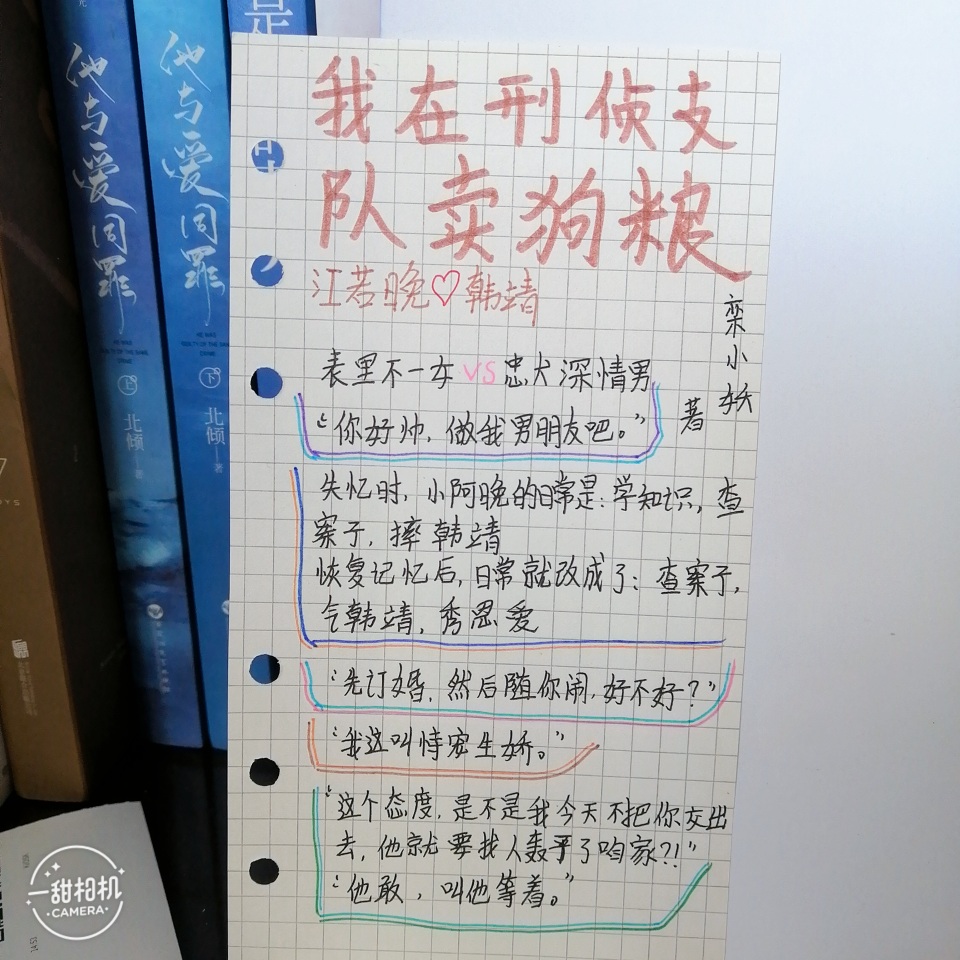 我在刑侦支
队卖狗粮
江若晚♡韩靖
栾小妖 著
表里不一女VS忠犬深情男
“你好帅,做我男朋友吧。”
失忆时,小阿晚的日常是:学知识,查
案子,摔韩靖
恢复记忆后,日常就改成了:查案子,
气韩靖,秀恩爱
“先订婚,然后随你闹,好不好?”
“我这叫恃宠生娇。”
“这个态度,是不是我今天不把你交出
去,他就要找人轰平了咱家?!”
“他敢,叫他等着。”
他与爱同罪
HE WAS
GUILTY OF THE SAME
CRIME
上
北倾
著
他与爱同罪
下
北倾
著
是
一甜相机
CAMERA